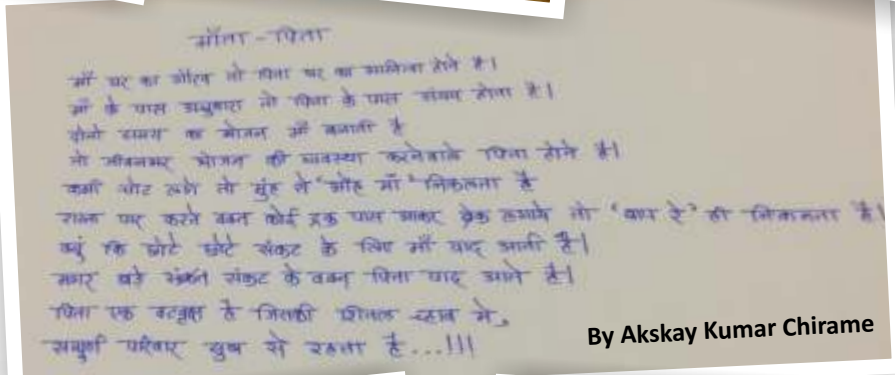 माँता - पिता
माँ घर का गौरव तो पिता घर का अस्तित्व होते है।
माँ के पास अश्रुधारा तो पिता के पास संयम होता है।
दोनो समय का भोजन माँ बनाती है
तो जीवनभर भोजन की व्यवस्था करनेवाले पिता होते है।
कभी चोट लगे तो मुंह से 'ओह माँ' निकलता है
रास्ता पार करते वक्त कोई ट्रक पास आकर ब्रेक लगाये तो 'बाप रे' ही निकलता है।
क्यूं कि छोटे छोटे संकट के लिए माँ याद आती है।
मगर बडे संकट के वक्त पिता याद आते है।
पिता एक वटवृक्ष है जिसकी शितल छाव मे,
सम्पुर्ण परिवार सुख से रहता है...!!!
By Akskay Kumar Chirame